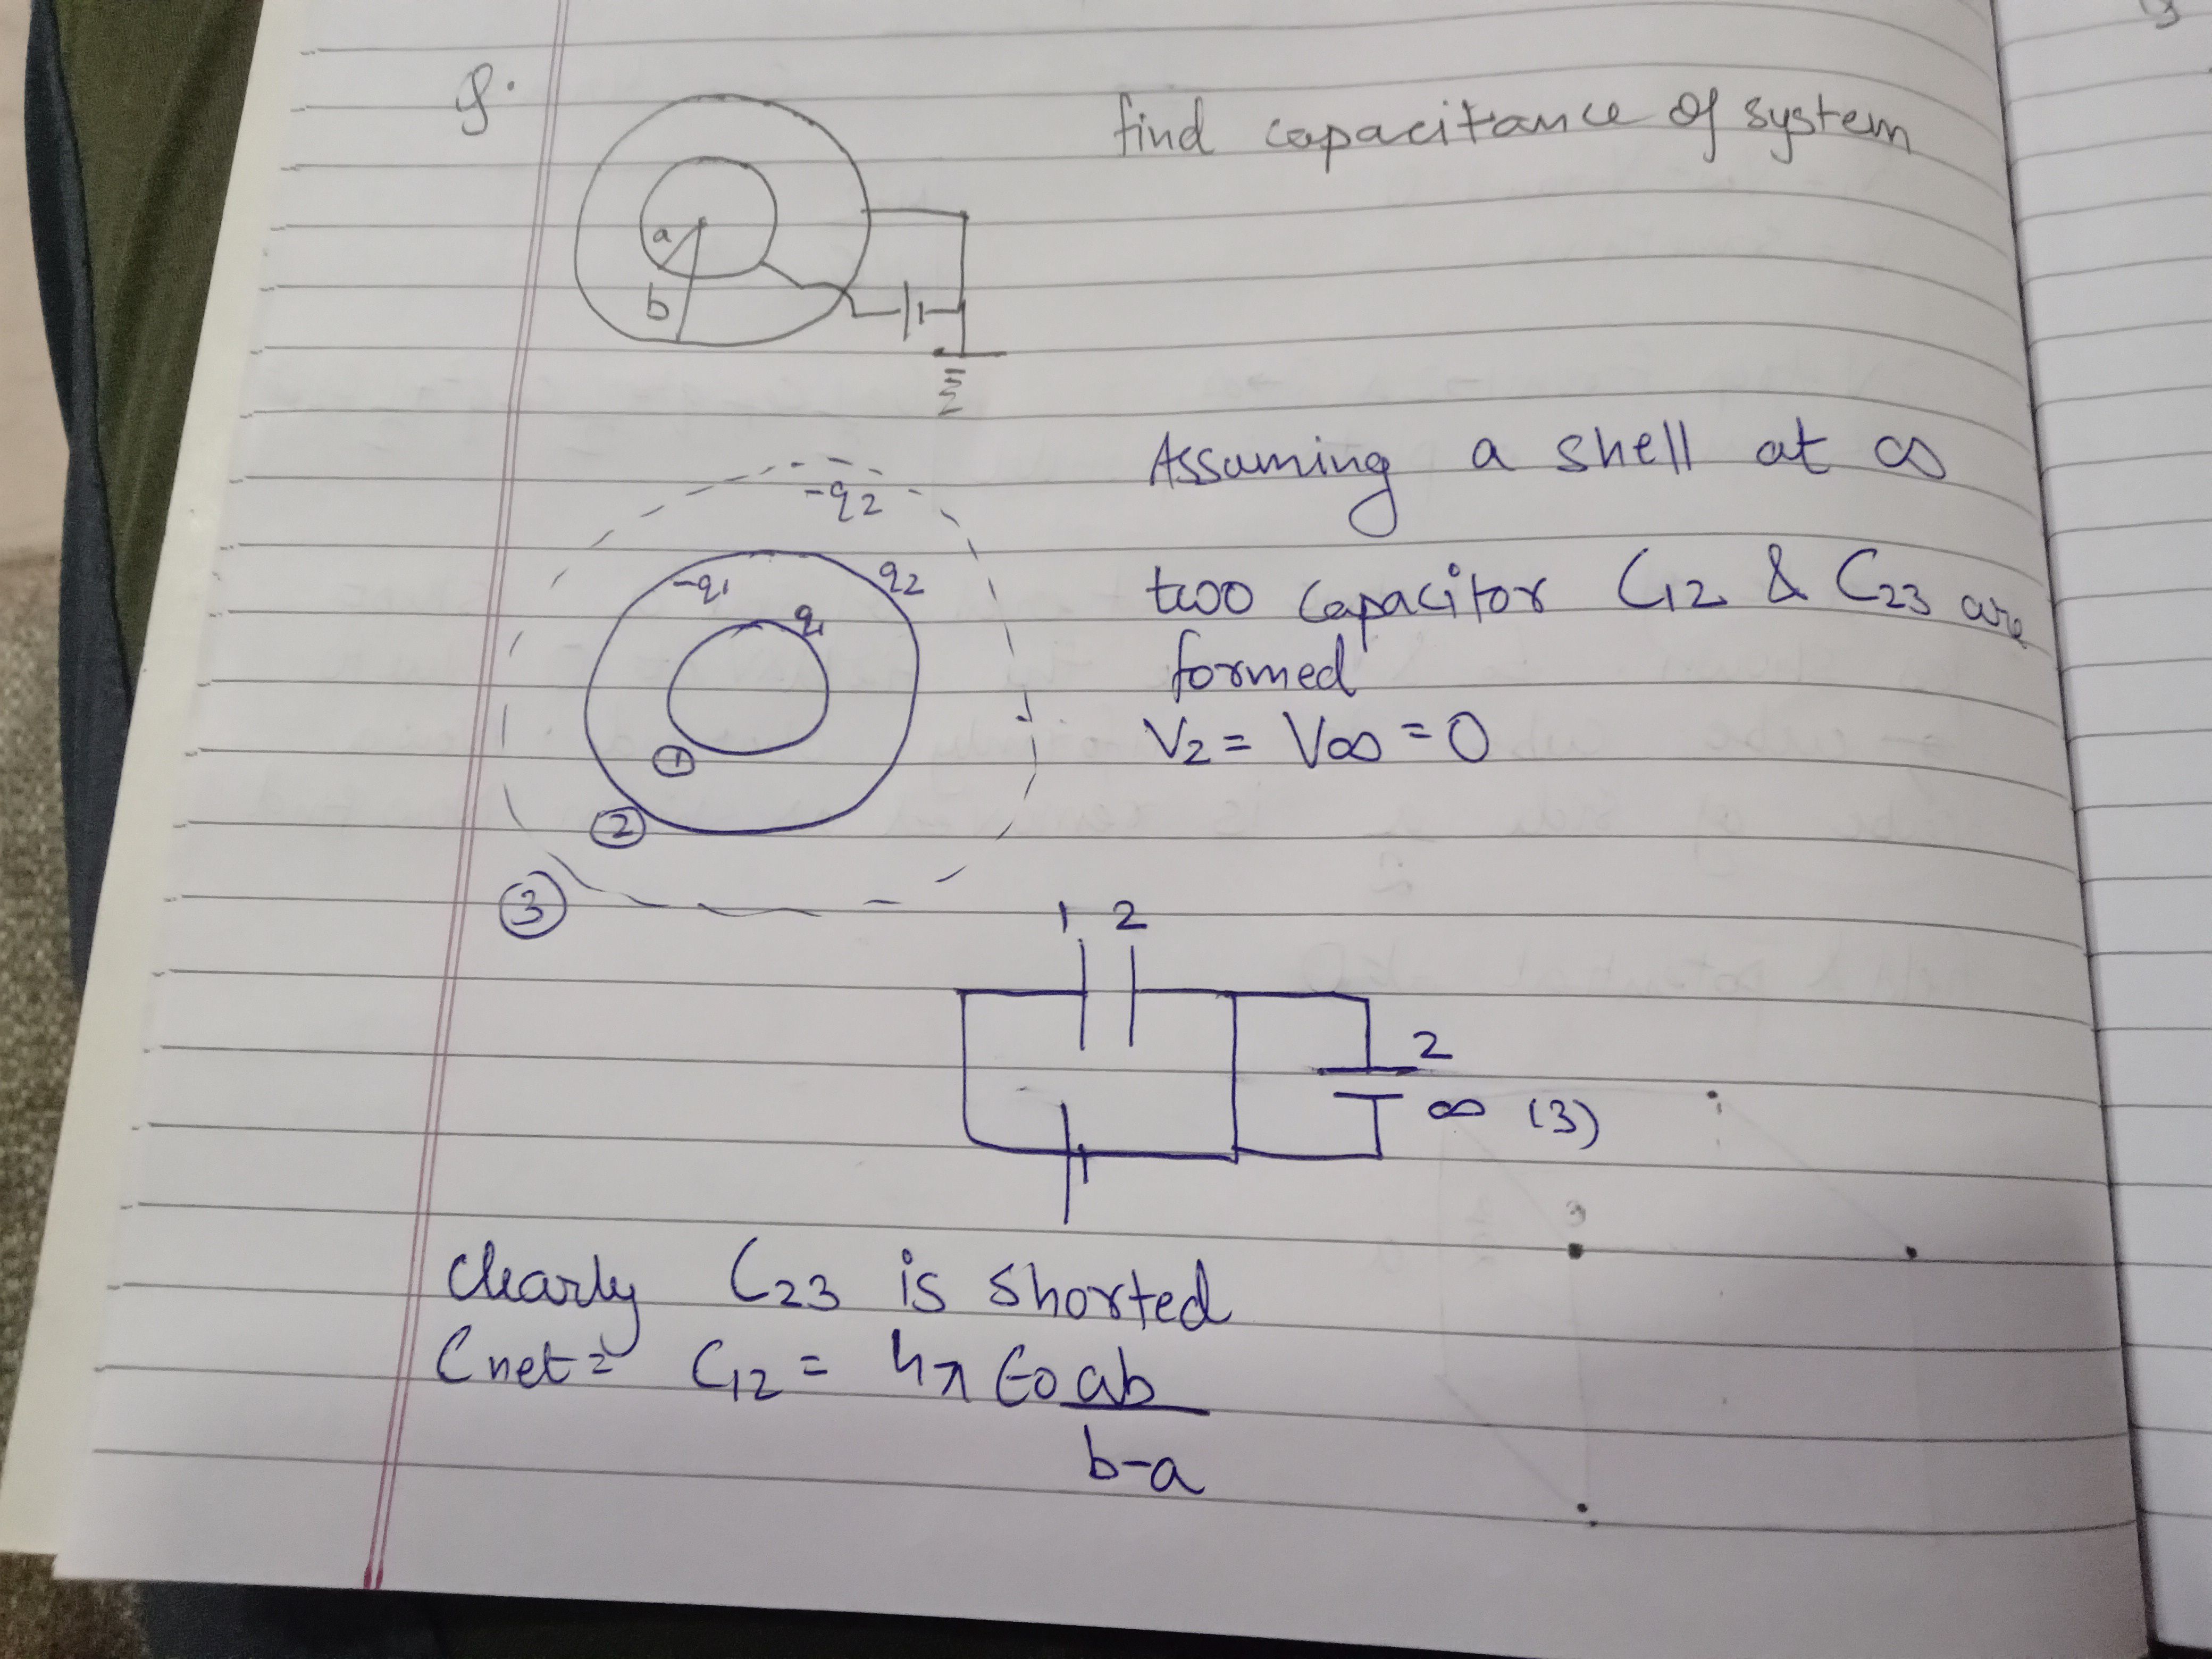 Q.
find capacitance of system
a
b
Assuming a shell at ∞
-q2
two capacitor C12 & C23 are
-q1
q2
q1
formed
V2 = V∞ = 0
1
2
3
1 2
2
∞ (3)
clearly C23 is shorted
Cnet = C12 = 4π ε0 ab
b-a